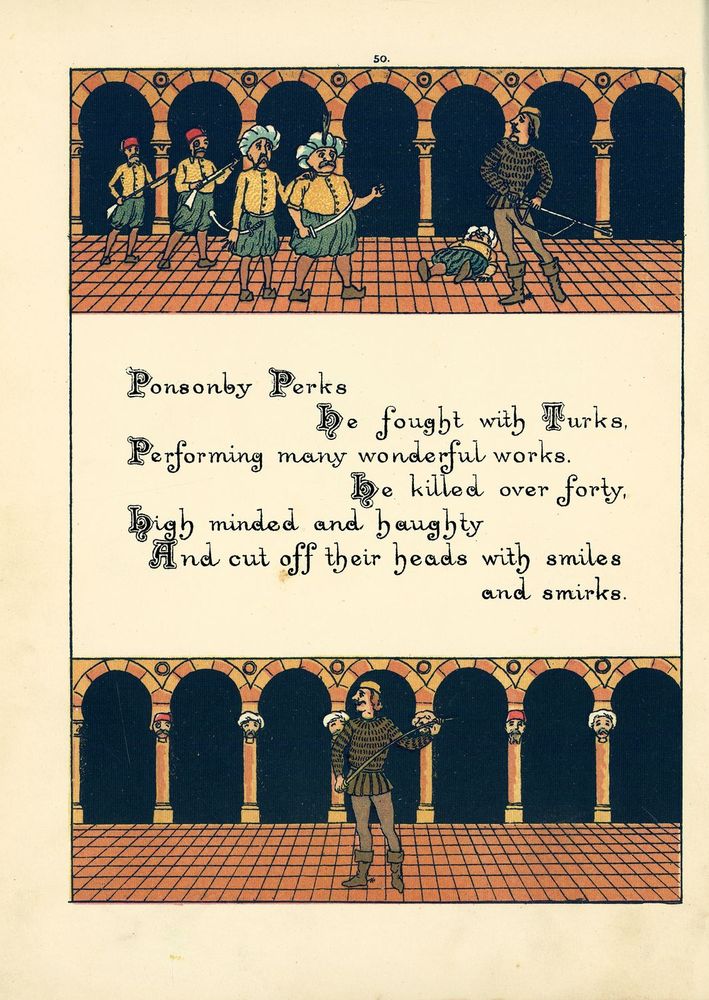 50.
Ponsonby Perks
He fought with Turks,
Performing many wonderful works.
He killed over forty,
High minded and haughty
And cut off their heads with smiles
and smirks.